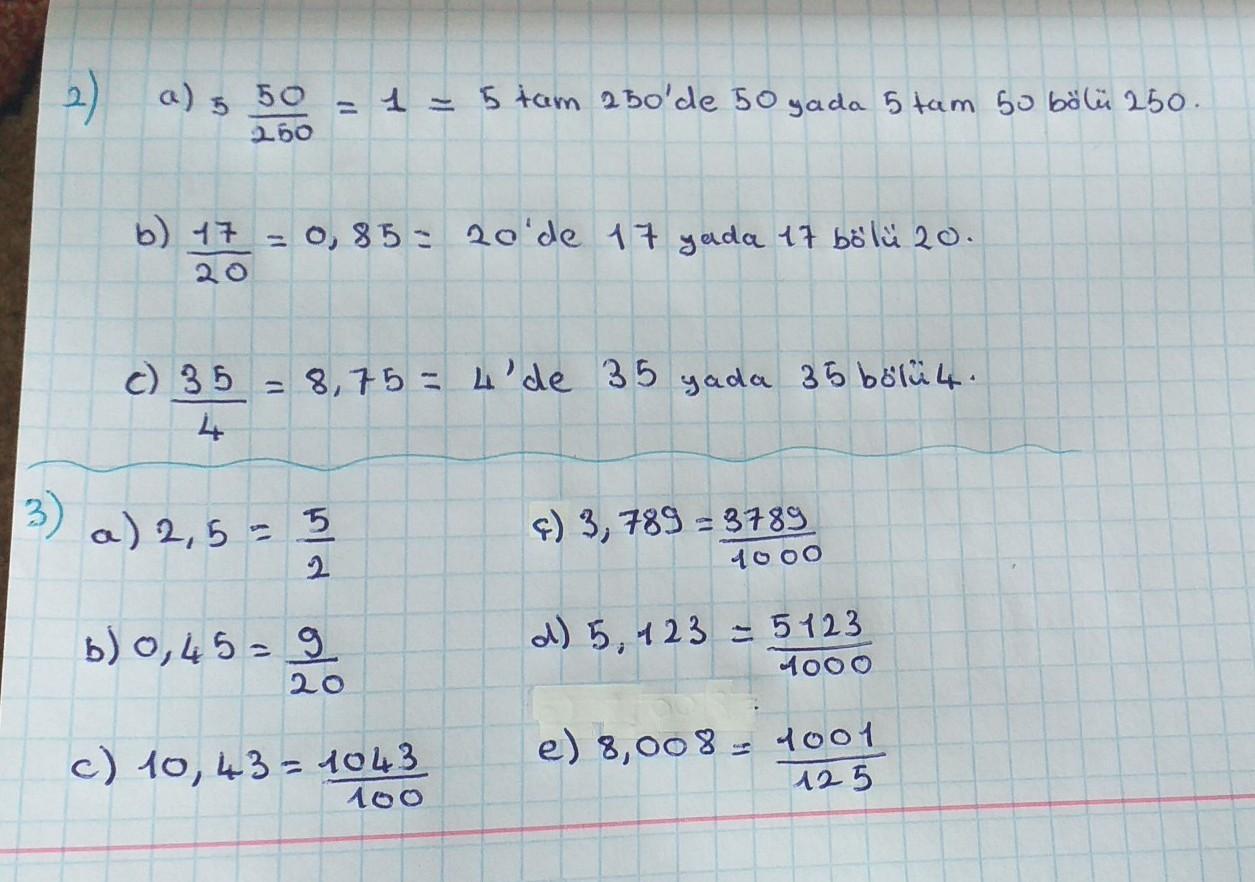 2) a) 5 50/250 = 1 = 5 tam 250'de 50 yada 5 tam 50 bölü 250.
b) 17/20 = 0,85 = 20'de 17 yada 17 bölü 20.
c) 35/4 = 8,75 = 4'de 35 yada 35 bölü 4.
3) a) 2,5 = 5/2
b) 0,45 = 9/20
c) 10,43 = 1043/100
ç) 3,789 = 3789/1000
d) 5,123 = 5123/1000
e) 8,008 = 1001/125